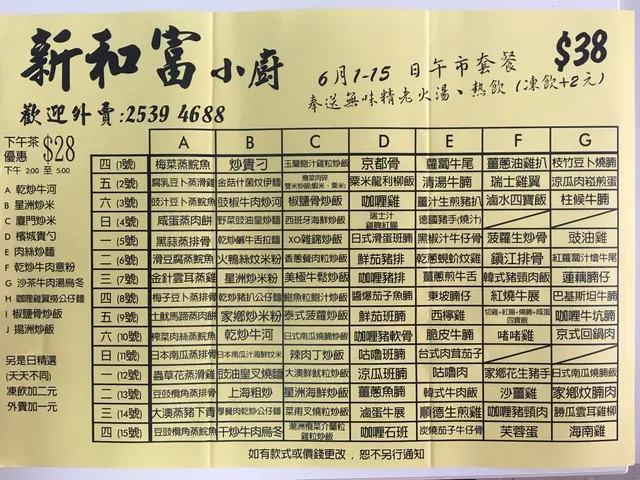 新和富小廚
$38
6月1-15 日午市套餐
奉送無味精老火湯、熱飲 (凍飲+2元)
歡迎外賣:2539 4688
下午茶
優惠 $28
下午 2:00 至 5:00
A 乾炒牛河
B 星洲炒米
C 廈門炒米
D 檳城貴刁
E 肉絲炒麵
F 乾炒牛肉意粉
G 沙茶牛肉湯烏冬
H 咖喱雞翼撈公仔麵
I 椒鹽骨炒飯
J 揚洲炒飯
另是日精選
(天天不同)
凍飲加二元
外賣加一元
A B C D E F G
四 (1號) 梅菜蒸鯇魚 炒貴刁 玉蘭鮑汁雞粒炒飯 京都骨 蘿蔔牛尾 薑蔥油雞扒 枝竹豆卜燒腩
五 (2號) 腐乳豆卜蒸滑雞 金菇什菌炆伊麵 粟米龍利柳飯 清湯牛腩 瑞士雞翼 涼瓜肉崧煎蛋
六 (3號) 豉汁豆卜蒸鯇魚 豉椒牛肉炒河 椒鹽骨炒飯 咖喱雞 薑汁生煎豬扒 滷水四寶飯 柱候牛腩
日 (4號) 咸蛋蒸肉餅 野菜豉油皇炒麵 西班牙海鮮炒飯 瑞士汁 德國豬手(燒汁)
一 (5號) 黑蒜蒸排骨 乾炒鹹牛舌扒麵 XO雜錦炒飯 日式滑蛋班腩 黑椒汁牛仔骨 菠蘿生炒骨 豉油雞
二 (6號) 滑豆腐蒸鯇魚 火鴨絲炆米粉 香蔥餐肉粒炒飯 鮮茄豬排 乾蔥蜆蚧炆雞 鎮江排骨 紅蘿蔔汁燴牛尾
三 (7號) 金針雲耳蒸雞 星洲炒米粉 美極牛鬆炒飯 咖喱豬排 薑蔥煎牛舌 韓式豬頸肉飯 蓮藕腩仔
四 (8號) 梅子豆卜蒸排骨 乾炒豬扒公仔麵 鮑魚粒鮑汁炒飯 醬爆茄子魚腩 東坡腩仔 紅燒牛展 巴基斯坦牛腩
五 (9號) 土魷馬蹄蒸肉餅 家鄉炒米粉 泰式菠蘿炒飯 鮮茄班腩 西檸雞 咖喱牛坑腩
六 (10號) 榨菜肉絲蒸鯇魚 乾炒牛河 日式南瓜燒腩炒飯 咖喱豬軟骨 脆皮牛腩 啫啫雞 京式回鍋肉
日 (11號) 日本南瓜蒸排骨 日本南瓜汁海鮮炆米 辣肉丁炒飯 咕嚕班腩 台式肉茸茄子
一 (12號) 蟲草花蒸滑雞 豉油皇叉燒麵 大澳鮮魷粒炒飯 涼瓜班腩 咕嚕肉 家鄉花生豬手 日式南瓜燒腩
二 (13號) 豆豉欖角蒸排骨 上海粗炒 星洲海鮮炒飯 薑蔥魚腩 韓式牛肉飯 沙薑雞 家鄉炆腩肉
三 (14號) 大澳蒸豬下青 學餐肉乾炒公仔麵 菜甫叉燒粒炒飯 滷蛋牛展 順德生煎雞 咖喱豬頸肉 勝瓜雲耳雞柳
四 (15號) 豆豉欖角蒸鯇魚 干炒牛肉烏冬 咖喱石班 炭燒茄子牛仔骨 芙蓉蛋 海南雞
如有款式或價錢更改，恕不另行通知